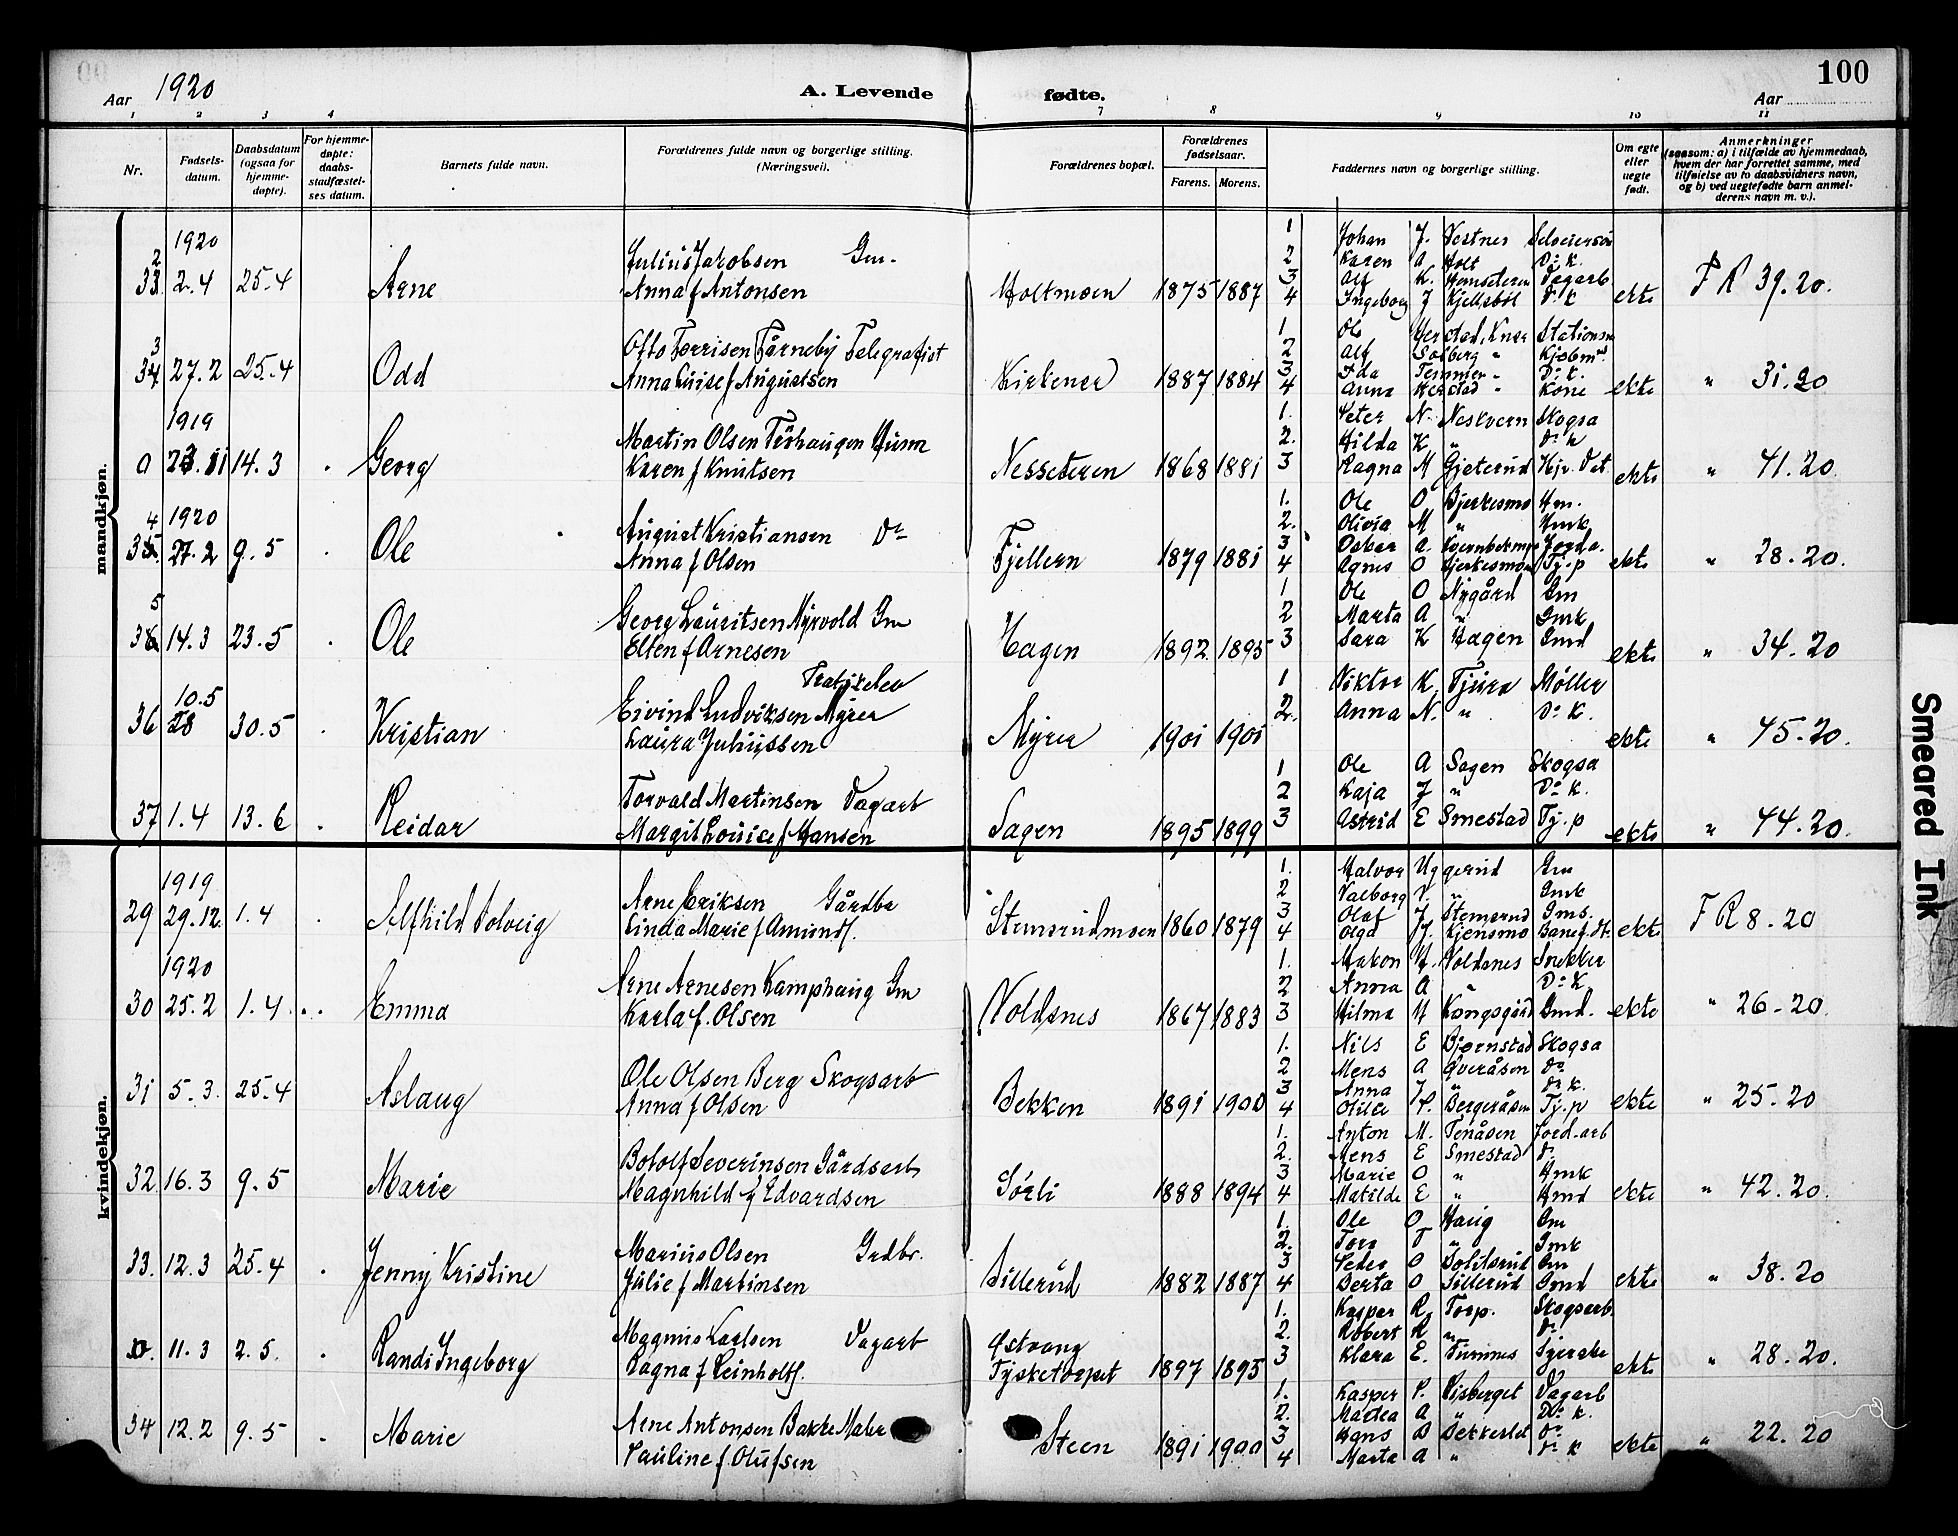 100
Aar 1920
A. Levende fødte.
Aar
1 2 3 4 7 8 9 10 11
Nr.
Fødsels-datum.
Daabsdatum (ogsaa for hjemme-døpte).
For hjemme-døpte: daabs-stadfæstel-ses datum.
Barnets fulde navn.
Forældrenes fulde navn og borgerlige stilling. (Næringsvei).
Forældrenes bopæl.
Forældrenes fødselsaar.
Farens. Morens.
Faddernes navn og borgerlige stilling.
Om egte eller uegte født.
Anmerkninger
(saasom: a) i tilfælde av hjemmedaab,
hvem der har forrettet samme, med
tilføielse av to daabsvidners navn,
og b) ved uegtefødte barn anmel-
derens navn m. v.).
mandkjøn.
1920
2
33 2.4 25.4 Arne
Julius Jacobsen Gm.
Anna f Antonsen
Holtmoen 1875 1887
1 Johan J. Vestnes
2 Karen A Holt Do k.
3 Alf K. Vegarb
4 Ingeborg J Kjellsbøl Do k
ekte F R 39.20.
3
34 27.2 25.4 Odd
Otto Torrisen Tårneby Telegrafist
Anna Luise f Augustsen
Kirkener 1887 1884
1. Ole
2 Alf Solberg " Kjøbm
3 Ida " Do k.
4 Anna " Kone
ekte " 31.20
1919
0 23.11 14.3 Georg
Martin Olsen
Karen f Knutsen
Nesseteren 1868 1881
1. Peter N. Neskvern Skogsa
2. Hilda K " Do k
3 Ragna M Gjeterud
ekte " 41.20.
1920
4
35 27.2 9.5 Ole
August Kristiansen Do
Anna f Olsen
Fjellern 1879 1881
1. Ole O Bjerkesmo Hm.
2. Olivia M " Hmk
3 Oskar A. Jorda.
4 Agnes O Bjerkesmoen Tj.p
ekte " 28.20.
5
36 14.3 23.5 Ole
Georg Lauritsen Myrvold Gm
Ellen f Arnesen
Hagen 1892 1895
1 Ole O Nygård Gm
2 Marta A " Gmk
3 Sara K Hagen Gmd
ekte " 34.20
10.5
36 28 30.5 Kristian
Eivind Ludviksen Myrer
Laura Juliussen
Myrer 1901 1901
1 Viktor K. Tjura Møller
2. Anna N. " Do k.
ekte " 45.20.
37 1.4 13.6 Reidar
Torvald Martinsen Vegarb
Margit Louise f Hansen
Sagen 1895 1899
1 Ole A Sagen Skogsa
2 Kaja J " Do k.
3 Astrid E Smestad Tj.p
ekte " 44.20.
kvindekjøn.
1919
29 29.12. 1.4 Alfhild Solveig
Arne Eriksen Gårdbr
Linda Marie f Amundf.
Stemsrudmoen 1860 1879
1. Halvor Uggerud Gm
2 Valborg V. " Gmk
3 Olaf J Stemsrud Gms.
4 Olga J. Kjensmo
ekte F R 8.20
1920
30 25.2 1.4 Emma
Arne Arnesen Kamphaug Gm
Karla f. Olsen
Noldsnes 1867 1883
1. Håkon N. Noldsnes Snekker
2 Anna A " Do K
3 Hilma H Kongsgård Gmd.
ekte " 26.20.
31 5.3. 25.4 Aslaug
Ole Olsen Berg Skogsarb
Anna f Olsen
Bekken 1891 1900
1. Nils E Bjørnstad Skogsa
2 Mens A Overåsen Do
3 Anna J " Do k.
4 Otilie P. Bergeråsen Tj.p
ekte " 25.20
32 16.3 9.5 Marie
Botolf Severinsen Gårdsarb
Magnhild f Edvardsen
Sørli 1888 1894
1. Anton M. Tenåsen Jord.arb
2. Mens E Smestad Do
3 Marie O " Hmk
4 Matilde E " Hmd
ekte " 42.20.
33. 12.3 25.4 Jenny Kristine
Marius Olsen Grdbr.
Julie f Martinsen
Sillerud 1882 1887
1. Ole O Haug Gm
2. Tora T " Gmk
3 Peder O Gm
4 Berta O Sillerud Gmd
ekte " 38.20
0. 11.3 2.5. Randi Ingeborg
Magnus Karlsen Vegarb
Ragna f Reinholtf.
Østvang
Tysketorpet 1897 1895
1. Kasper R. Torp. Skogsarb.
2. Robert R " Do
3 Klara E.
ekte " 28.20.
34 12.2 9.5 Marie
Arne Antonsen Bakke Maler
Pauline f Olufsen
Steen 1891 1900
1. Kasper P. Risberget Vegarb
2. Martea A " Do k.
3 Do
4 Marta A " Do k
ekte " 22.20
Smeared Ink